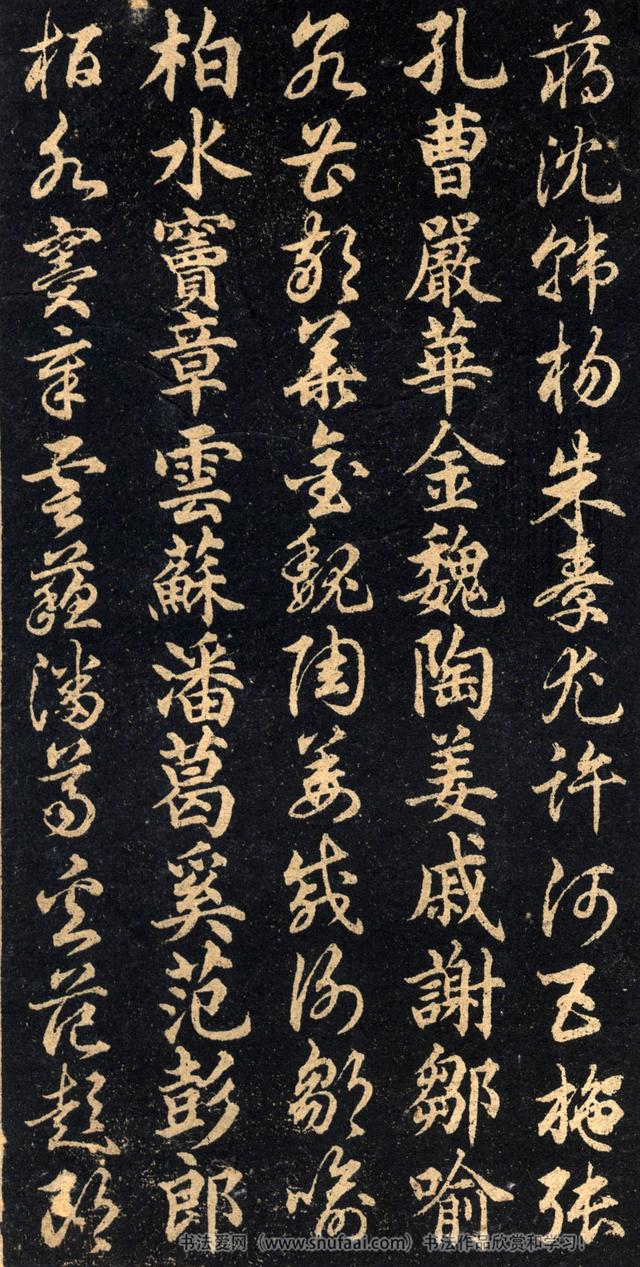 蒋沈韩杨朱秦尤许何吕施张
孔曹嚴華金魏陶姜戚謝鄒喻
孔曹嚴華金魏陶姜戚謝鄒喻
柏水竇章雲蘇潘葛奚范彭郎
柏水竇章雲蘇潘葛奚范彭郎
书法爱网（www.shufaai.com）书法作品欣赏和学习！